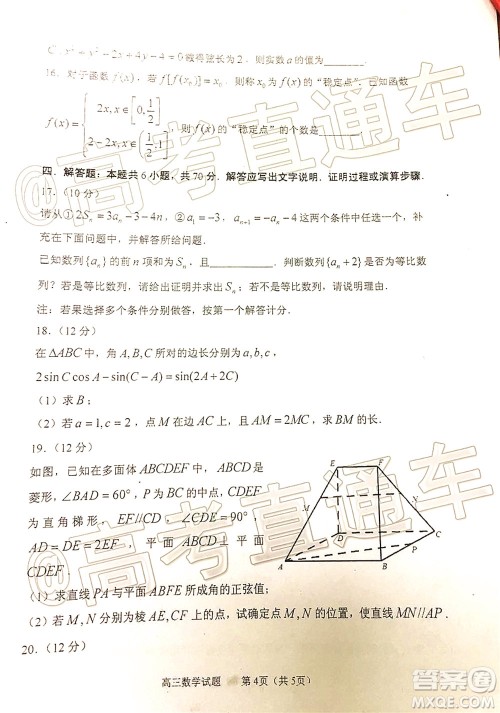 C: x²+y²-2x+4y-4=0 截得弦长为2，则实数a的值为______.
16. 对于函数f(x)，若f[f(x₀)]=x₀，则称x₀为f(x)的“稳定点”. 已知函数
f(x)={2x, x∈[0, 1/2]
2-2x, x∈(1/2, 1]，则f(x)的“稳定点”的个数是______.
四、解答题：本题共6小题，共70分. 解答应写出文字说明. 证明过程或演算步骤.
17.（10分）
请从①2Sₙ=3aₙ-3-4n，②a₁=-3，aₙ₊₁=-aₙ-4 这两个条件中任选一个，
补充在下面问题中，并解答所给问题.
已知数列{aₙ}的前n项和为Sₙ且________. 判断数列{aₙ+2}是否为等比数
列？若是等比数列，请给出证明并求出Sₙ；若不是等比数列，说明理由.
注：若果选择多个条件分别做答，按第一个解答计分.
18.（12分）
在△ABC中，角A,B,C所对的边长分别为a,b,c，
2sin C cos A-sin(C-A)=sin(2A+C)
（1）求B；
（2）若a=1,c=2，点M在边AC上，且AM=2MC，求BM的长.
19.（12分）
如图，已知在多面体ABCDEF中，ABCD为
菱形，∠BAD=60°，P为BC的中点，CDEF
为直角梯形，EF//CD，∠CDE=90°，
AD=DE=2EF，平面ABCD⊥平面
CDEF
（1）求直线PA与平面ABFE所成角的正弦值；
（2）若M,N分别为棱AE,CF上的点，试确定点M,N的位置，使直线MN//AP.
E
F
M
N
D
C
P
A
B
20.（12分）
高三数学试题 第4页（共5页）
@高考直通车
@高考直通车
答案圈
MXQE.COM